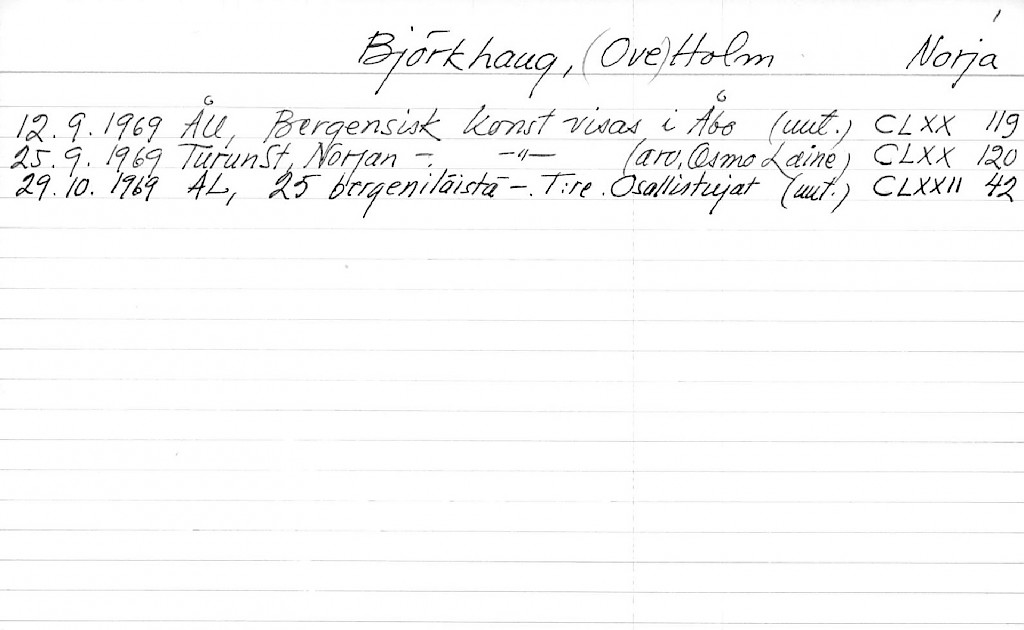 Björkhaug, (Ove) Holm Norja
12.9.1969 ÅU, Bergensisk konst visas i Åbo (uut.) CLXX 119
25.9.1969 TurunSt, Norjan -. -"- (arv, Osmo Laine) CLXX 120
29.10.1969 AL, 25 bergeniläistä -. T:re. Osallistujat (uut.) CLXXII 42